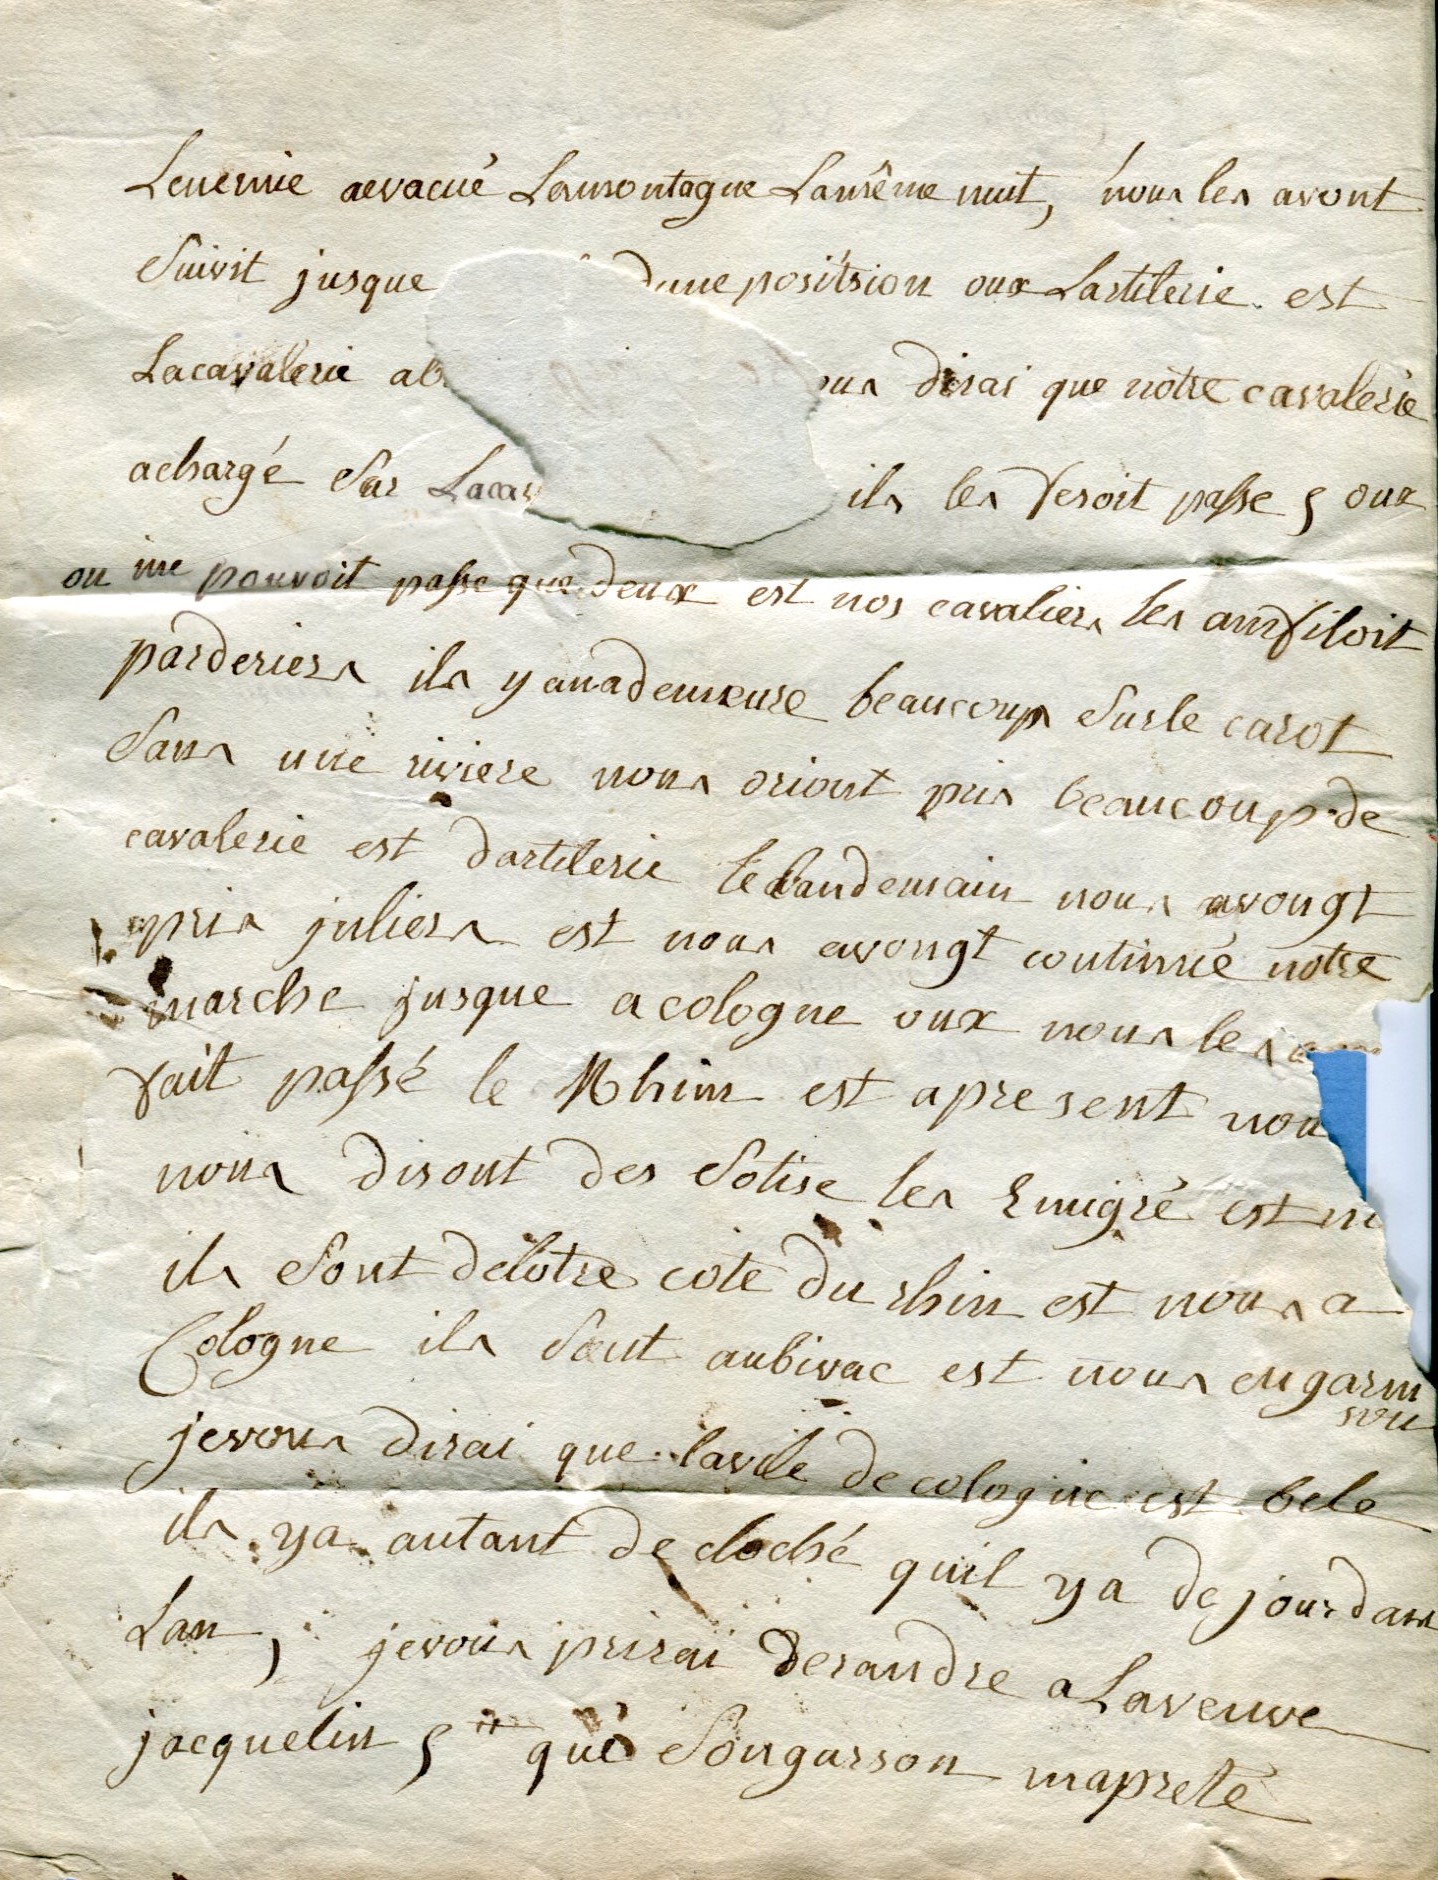 Lenemie aevacué Lamontagne Lamême nuit, nous les avont
Suivit jusque dune positsion oux Lartilerie est
Lacavalerie ab ous dirai que notre cavalerie
achargé Sur Lacav ils les fesoit passe 5 oux
on ine pouvoit passe que deux est nos cavaliers les anfiloit
parderiers ils y anademeure beaucoups Surle carot
dans une riviere nous oriont pris beaucoup de
cavalerie est dartilerie le landemain nous avongt
pris juliers est nous avongt continué notre
marche jusque a cologne oux nous les
fait passé le Rhin est apresent nou
nous disont des Sotise les Emigré est
ils Sont delotre coté du rhin est nous a
Cologne ils Sont aubivac est nous engarni
sou
jevous dirai que lavile de cologne est bele
ils ya autant de cloché quil ya de jour dans
Lan, jevous prirai derandre a Laveuve
jacquelin 5 tt que Songarson maprete